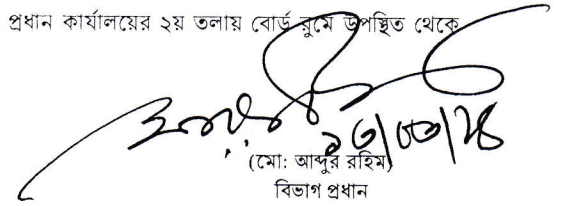 প্রধান কার্যালয়ের ২য় তলায় বোর্ড রুমে উপস্থিত থেকে
(মো: আব্দুর রহিম)
বিভাগ প্রধান